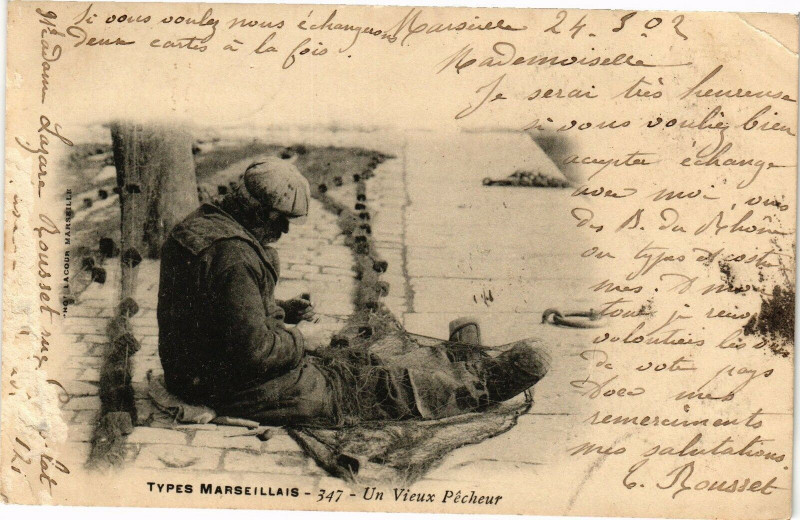 Si vous voulez nous échangerons
deux cartes à la fois.
Marseille 24.3.02
Mademoiselle
Je serai très heureuse
si vous vouliez bien
accepter échange
avec moi, vues
des B. du Rhône
ou types et costu
mes.
tout je reçois
volontiers les vues
de votre pays
Avec mes
remerciments
mes salutations.
C. Rousset
Madame Lazare Rousset rue
121
PHOT LACOUR MARSEILLE
TYPES MARSEILLAIS - 347 - Un Vieux Pêcheur